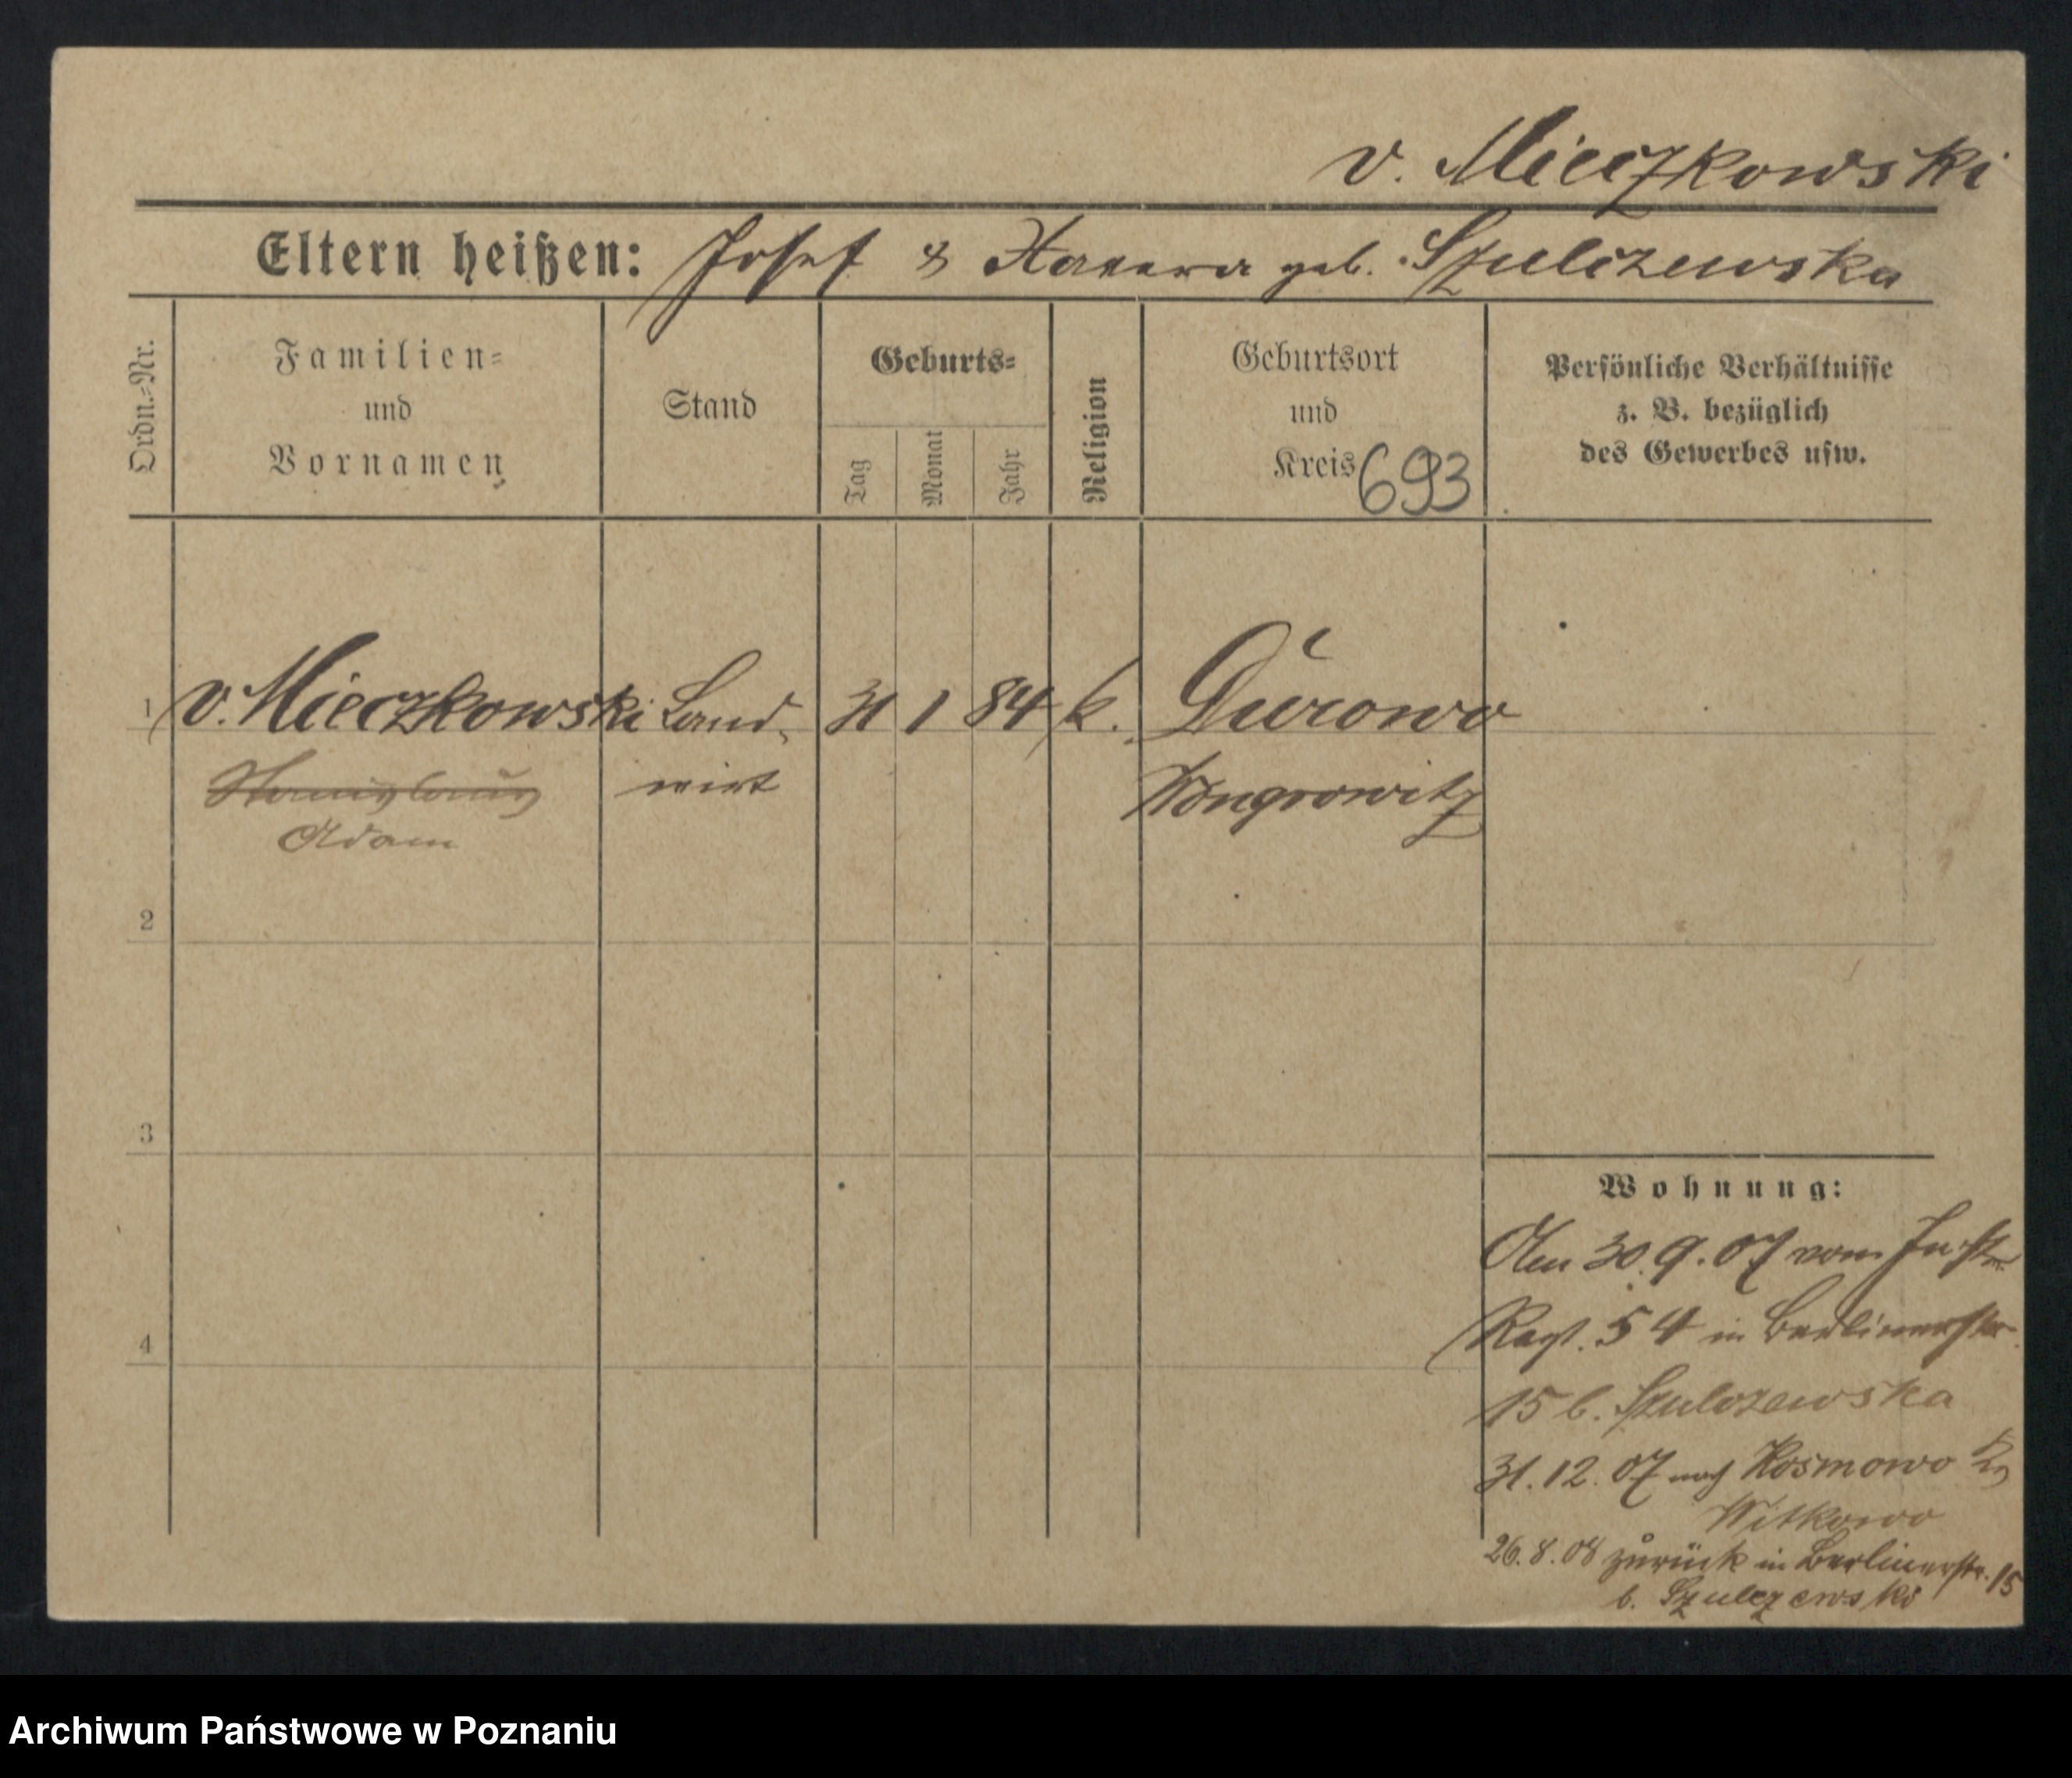 v. Mieczkowski
Eltern heißen: Josef & geb. Szulczewska
Ordn.-Nr.
Familien-
und
Vornamen
Stand
Geburts-
Tag
Monat
Jahr
Religion
Geburtsort
und
Kreis 693
Persönliche Verhältnisse
z. B. bezüglich
des Gewerbes usw.
1 v. Mieczkowski Land- 31 1 84 k. Durowo
Stanislaus wirt Wongrowitz
Adam
2
3
4
Wohnung:
Am 30.9.07 vom
Regt. 54 in Berlinerstr.
15 b. Szulczewska
31.12.07 nach Kosmowo
Witkowo
26.8.08 zurück in Berlinerstr. 15
b. Szulczewski
Archiwum Państwowe w Poznaniu